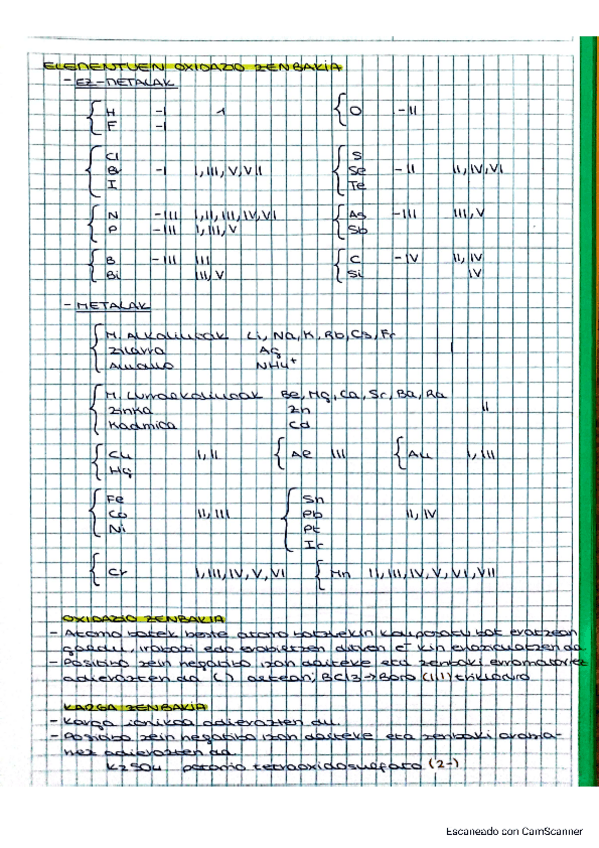 ELEMENTUEN OXIDAZIO ZENBAKIA
- EZ-METALAK
H -I 1
F -I
O -II
Cl
Br -I I, III, V, VII
I
S
Se -II II, IV, VI
Te
N -III I, II, III, IV, VI
P -III I, III, V
As -III III, V
Sb
B -III III
Bi III, V
C -IV II, IV
Si IV
- METALAK
M. Alkalinoak Li, Na, K, Rb, Cs, Fr
Zilarra Ag I
Amonio NH4+
M. Lurralkalinoak Be, Mg, Ca, Sr, Ba, Ra
Zinka Zn II
Kadmioa Cd
Cu I, II
Hg
Al III
Au I, III
Fe
Co II, III
Ni
Sn
Pb II, IV
Pt
Ir
Cr I, III, IV, V, VI
Mn II, III, IV, V, VI, VII
OXIDAZIO ZENBAKIA
- Atomo batek beste atomo batzuekin konposatu bat eratzean
galdu, irabazi edo erabiltzen dituen e- kin erlazionatzen da
- Positibo zein negatibo izan daiteke eta zenbaki erromatarrez
adierazten da () artean; BCl3 → Boro (III) trikloruro
KARGA ZENBAKIA
- Karga ionikoa adierazten du.
- Positibo zein negatibo izan daiteke eta zenbaki arabia-
rrez adierazten da.
K2SO4 potasio tetraoxidosulfato (2-)
Escaneado con CamScanner